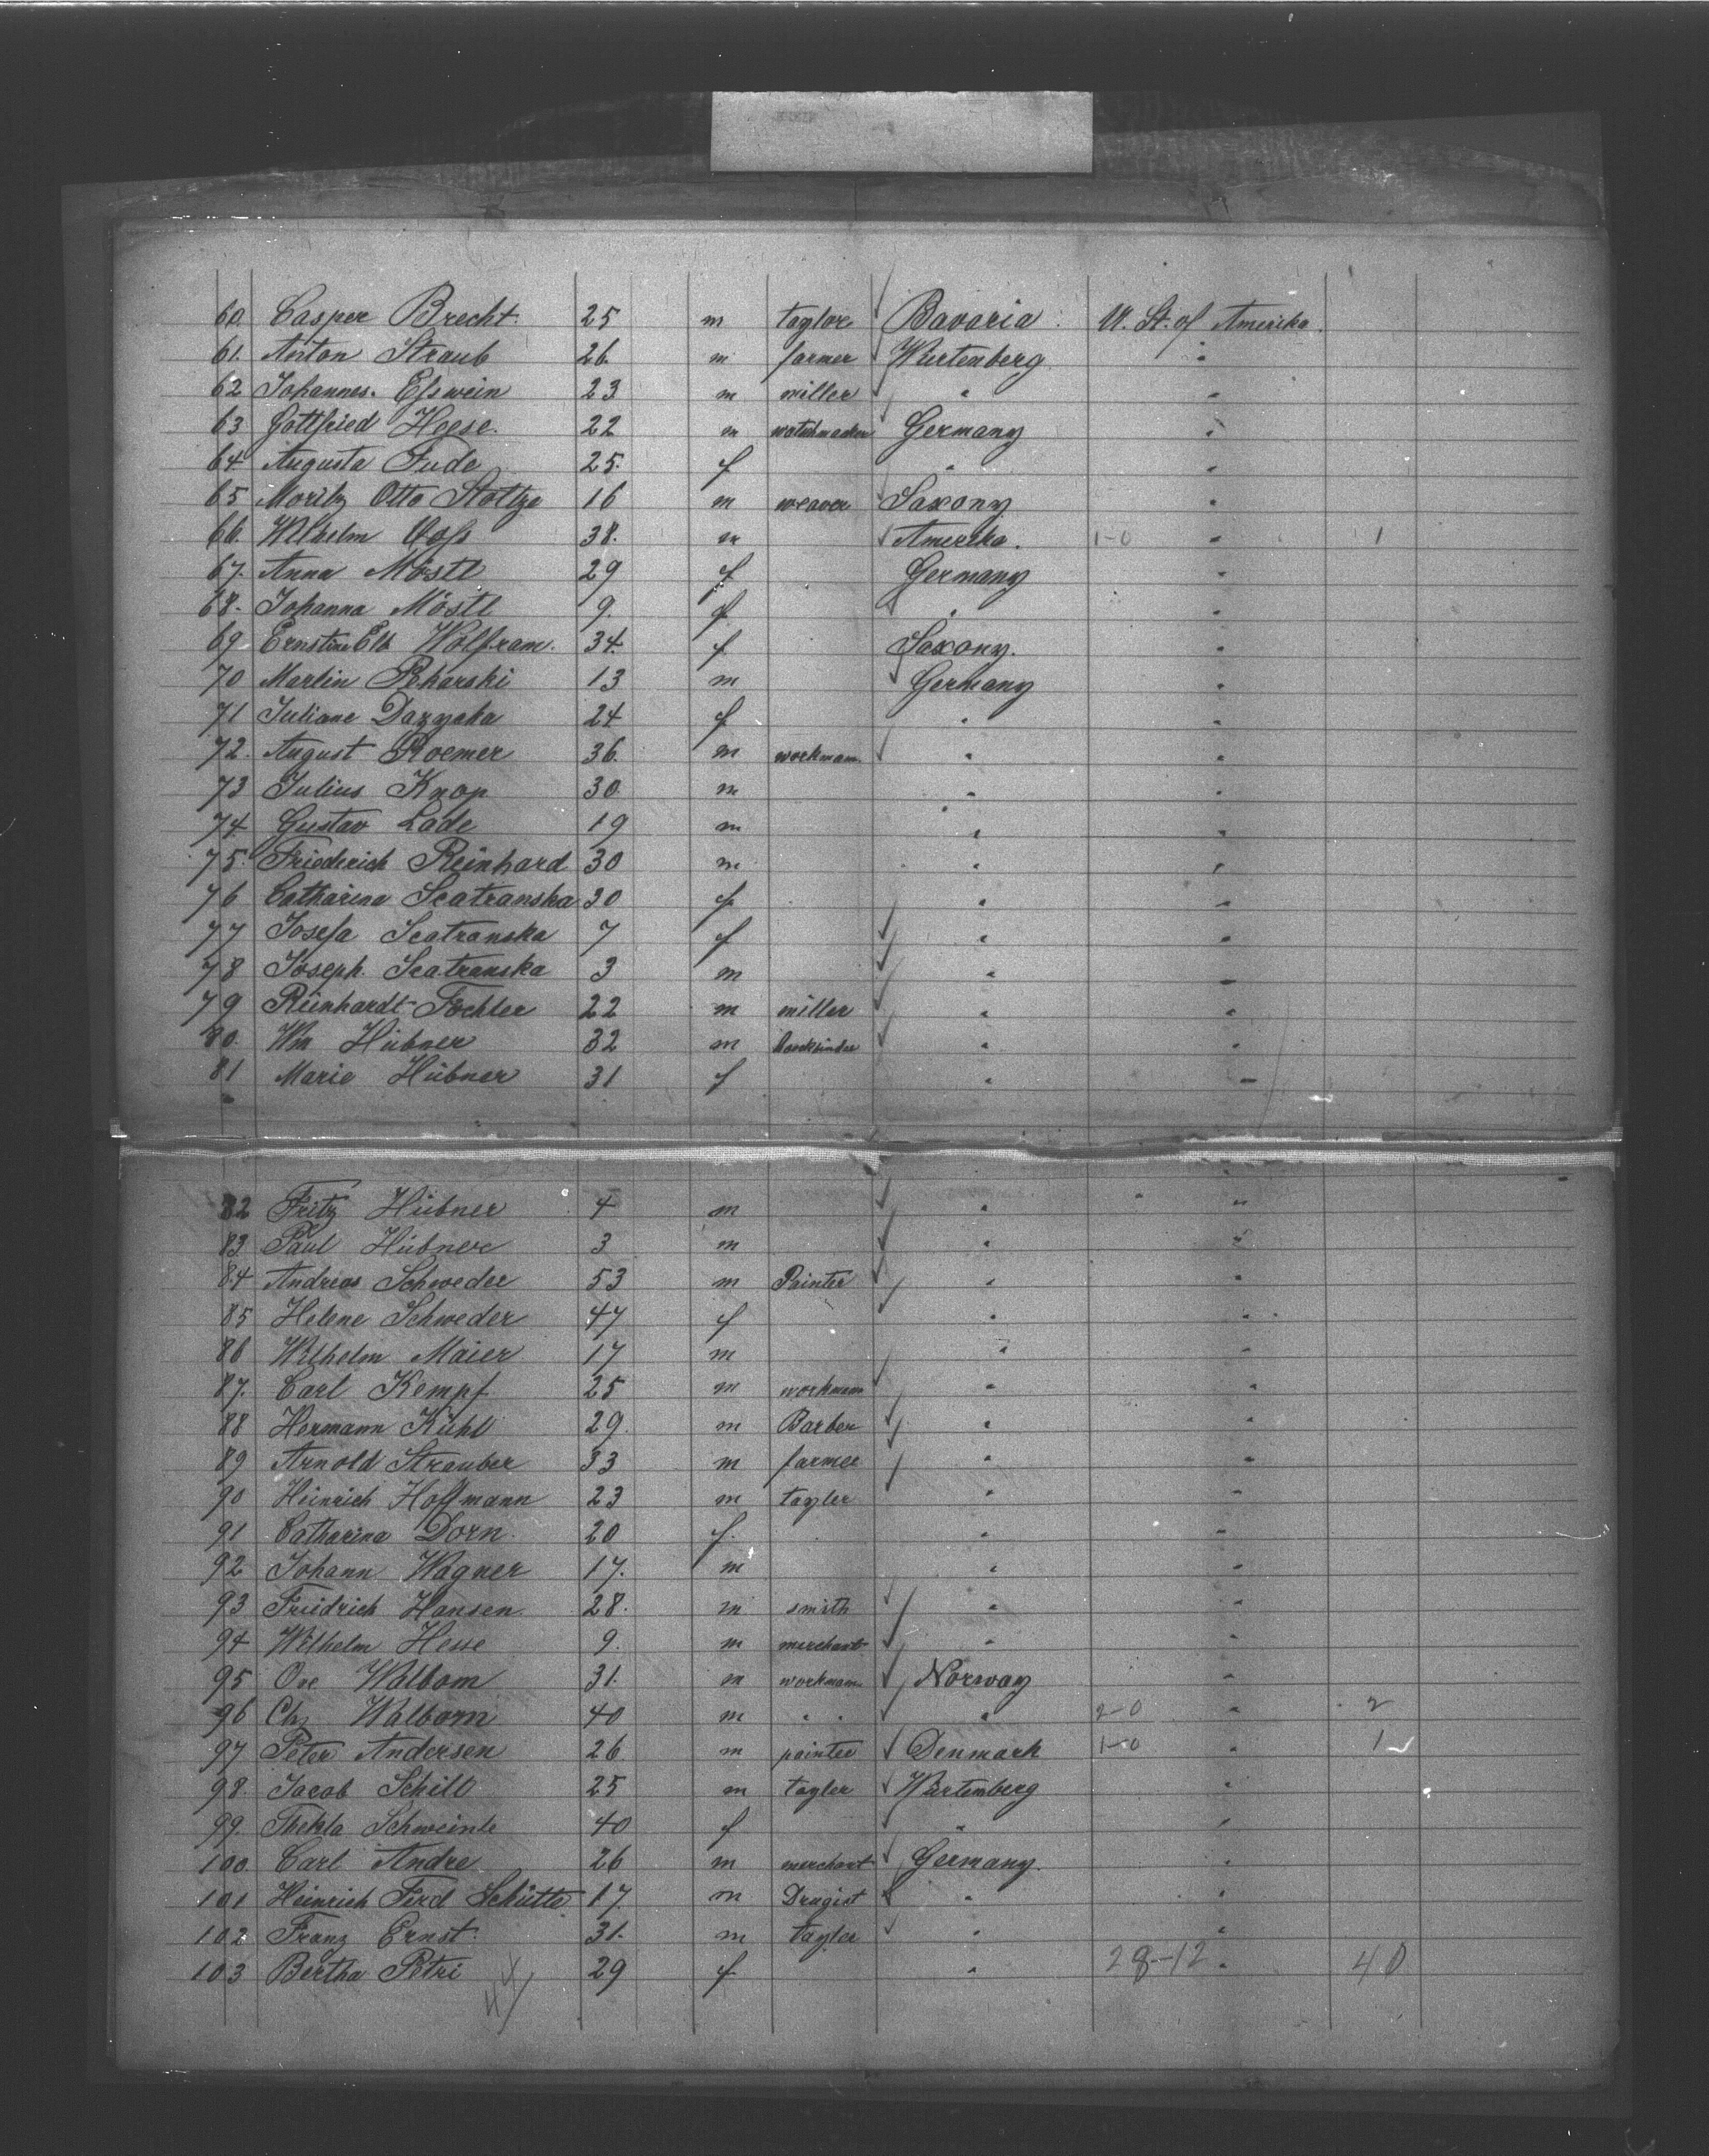 60 Casper Brecht. 25 m taylor Bavaria U. St. of Amerika.
61. Anton Straub 26 m farmer Würtenberg "
62 Johannes. Eßwein 23 m miller " "
63 Gottfried Heese. 22 m watchmacker Germany "
64 Augusta Tude 25. f " "
65 Moritz Otto Stoltze 16 m weaver Saxony "
66. Wilhelm Voß 38. m Amerika. 1-0 " 1
67. Anna Möstl 29 f Germany "
68. Johanna Möstl 9. f " "
69. Ernstine Elb Wolfram. 34. f Saxony. "
70 Martin 13 m Germany "
71 Juliane 24 f " "
72. August Roemer 36. m workmann. " "
73 Julius Knop 30 m " "
74. Gustav Lade 19 m " "
75. Friederich Reinhard 30 m " "
76 Catharina Scatranska 30 f " "
77 Josefa Scatranska 7 f " "
78 Joseph. Scatranska 3 m " "
79 Reinhardt Fochler 22 m miller " "
80. Wm Hübner 32 m " "
81 Marie Hübner 31 f " "
82 Fritz Hübner 4 m " " "
83 Paul Hübner 3 m " "
84 Andreas Schweder 53 m Painter " "
85 Helene Schweder 47 f " "
86 Wilhelm Maier 17 m " "
87. Carl Kempf. 25 m workmann " "
88 Hermann Kühl 29 m Barber " "
89 Arnold Strauber 33 m farmer " "
90 Heinrich Hoffmann 23 m tayler " "
91 Catharina Dorn. 20 f. " "
92 Johann Wagner 17. m " "
93 Friedrich Hansen 28. m smith " "
94 Wilhelm Hesse 9. m merchant " "
95 Ove Walbom 31. m workmann Norway "
96 Chr Walbom 40 m " " " 2-0 " 2
97 Peter Andersen 26 m painter Denmark 1-0 " 1
98. Jacob Schill 25 m tayler Würtenberg "
99. Thekla Schweinle 40 f " "
100. Carl Andre 26 m merchant Germany. "
101 Heinrich Ferd Schütte 17. m Drugist " "
102 Franz Ernst. 31. m tayler " "
103 Bertha Petri 29 f " 28-12 " 40
44